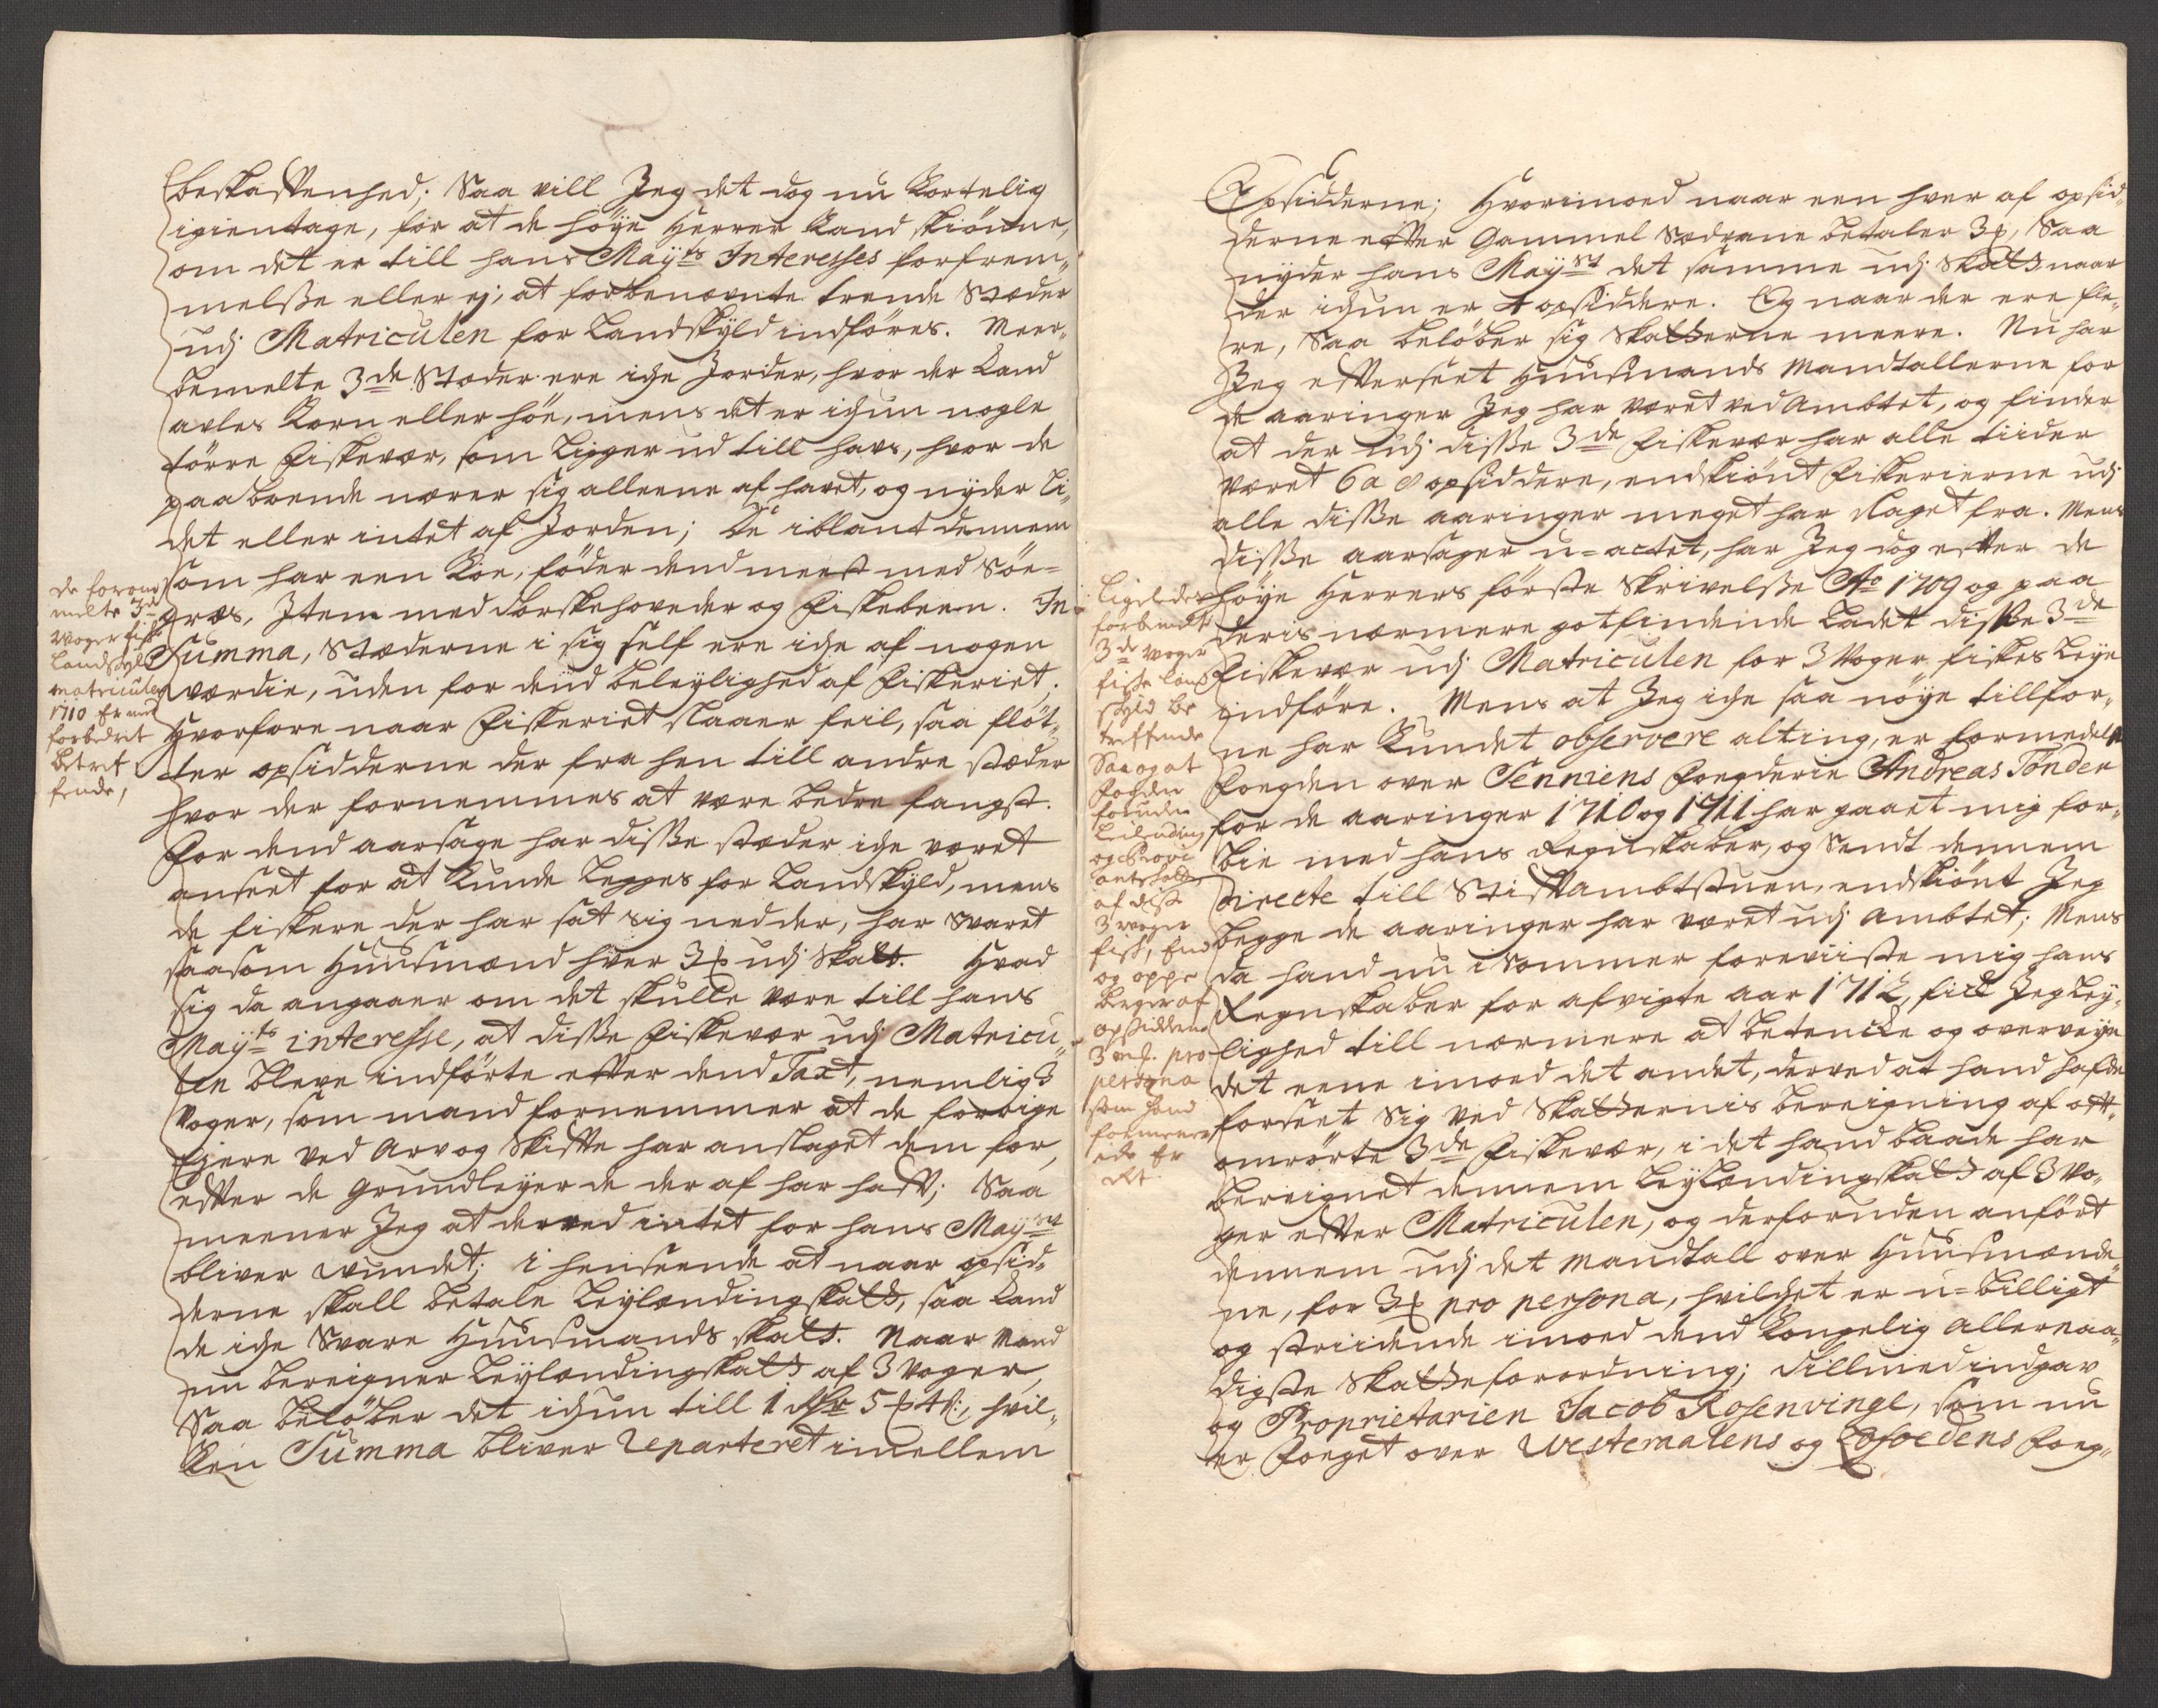 beskaffenhed; Saa vill Jeg det dog nu kortelig
igientage, for at de høÿe Herrer kand skiønne,
om det er till hans Maÿts Interesses forfrem„
melsße eller ej, at forbenævnte trende Stæder
udj Matriculen for Landskÿld indføres. Meer„
bemelte 3de Stæder ere iche Jorder, hvor der kand
avles korn eller høe, mens det er ichun nogle
tørre Fiskevær, som ligger ud till havs, hvor de
paaboende nærer sig alleene af havet, og nÿder li„
det eller intet af Jorden; De iblant dennem
som har een koe, føder dend meest med Søe=
græs, Item med dorskehoveder og Fiskebeen. In
Summa, Stæderne i sig self ere iche af nogen
værdie, uden for dend beleÿlighed af Fiskeriet.
Hvorfore naar Fiskeriet slaaer feil, saa fløt„
ter opsidderne der fra hen till andre stæder
hvor der fornemmes at være bedre fangst.
For dend aarsage har disße stæder iche været
anseet for at kunde legges for Landskÿld, mens
de fiskere der har sat sig ned der, har svaret
saasom Huusmænd hver 3 udj Skatt. Hvad
sig da angaaer om det skulle være till hans
Maÿts interesse, at disße Fiskevær udj Matricu„
len bleve indførte efter dend Taxt, nemlig 3
voger, som mand fornemmer at de forrige
Ejere ved Arv og Skifte har anslaget dem for,
efter de grundleÿer de der af har haft; Saa
meener Jeg at derved intet for hans Maÿst
bliver vundet; i henseende at naar opsid„
derne skall betale Leÿlændingskatt, saa kand
de iche svare Huusmands skatt. Naar mand
nu bereigner Leÿlændingskatt af 3 voger,
Saa beløber det ichun till 1 Rdr 5 4 ß:, hvil„
ken Summa bliver reparteret imellem
de forom
melte 3de
voger fiskes
Landskÿl
matriculen
1710 Er
forbedret
betref
fende,
Opsidderne; Hvorimoed naar een hver af opsid„
derne efter Gammel Sædvane betaler 3, Saa
nÿder hans Maÿst det samme udj Skatt naar
der ichun er 4 opsiddere. Og naar der ere fle„
re, Saa beløber sig Skatterne meere. Nu har
Jeg efterseet Huusmands Mandtallerne for
de aaringer Jeg har været ved Ambtet, og finder
at der udj disße 3de Fiskevær har alle tiider
været 6 a 8 opsiddere, endskiønt Fiskerierne udj
alle disße aaringer meget har slaget fra. Mens
disße aarsager u=actet, har Jeg dog efter de
høÿe Herrers første Skrivelsße Ao 1709 og paa
deris nærmere gotfindende ladet disße 3de
Fiskevær udj Matriculen for 3 Voger fiskes Leÿe
indføre. Mens at Jeg iche saa nøÿe tillfor„
ne har kundet observere alting, er formedelst
Fogden over Senniens Fogderie Andreas Tønder
for de aaringer 1710 og 1711 har gaaet mig for„
bie med hans Regnskaber, og sendt dennem
directe till Stiftambtstuen, endskiønt Jeg
begge de aaringer har været udj Ambtet; Mens
da hand nu i Sommer foreviiste mig hans
Regnskaber for afvigte aar 1712, fick Jeg leÿ„
lighed till nærmere at betencke og overveÿe
det eene imoed det andet, derved at hand hafde
forseet sig ved Skatternis bereigning af oft„
omrørte 3de Fiskevær, i det hand baade har
bereignet dennem Leÿlændingskatt af 3 vo„
ger efter Matriculen, og derforuden anført
dennem udj det Mandtall over Huusmænde„
ne, for 3 pro persona, hvilchet er u=billigt
og striidende imoed dend kongelig allernaa„
digste Skatteforordning; Tillmed indgav
og Proprietarien Jacob Rosenvinge, som nu
er Foeget over Westeraalens og Lofoedens Foeg„
Ligeledes
forbemelte
3de voger
fiske land
skÿld be
treffende
Saa og at
Fogden
foruden
Leilænding
og Provi
antskatt
af disße
3 voger
fisk, End
og oppe
berger af
opsiddern
3 mk. pro
persona
som hand
formener
iche Er
Ret.